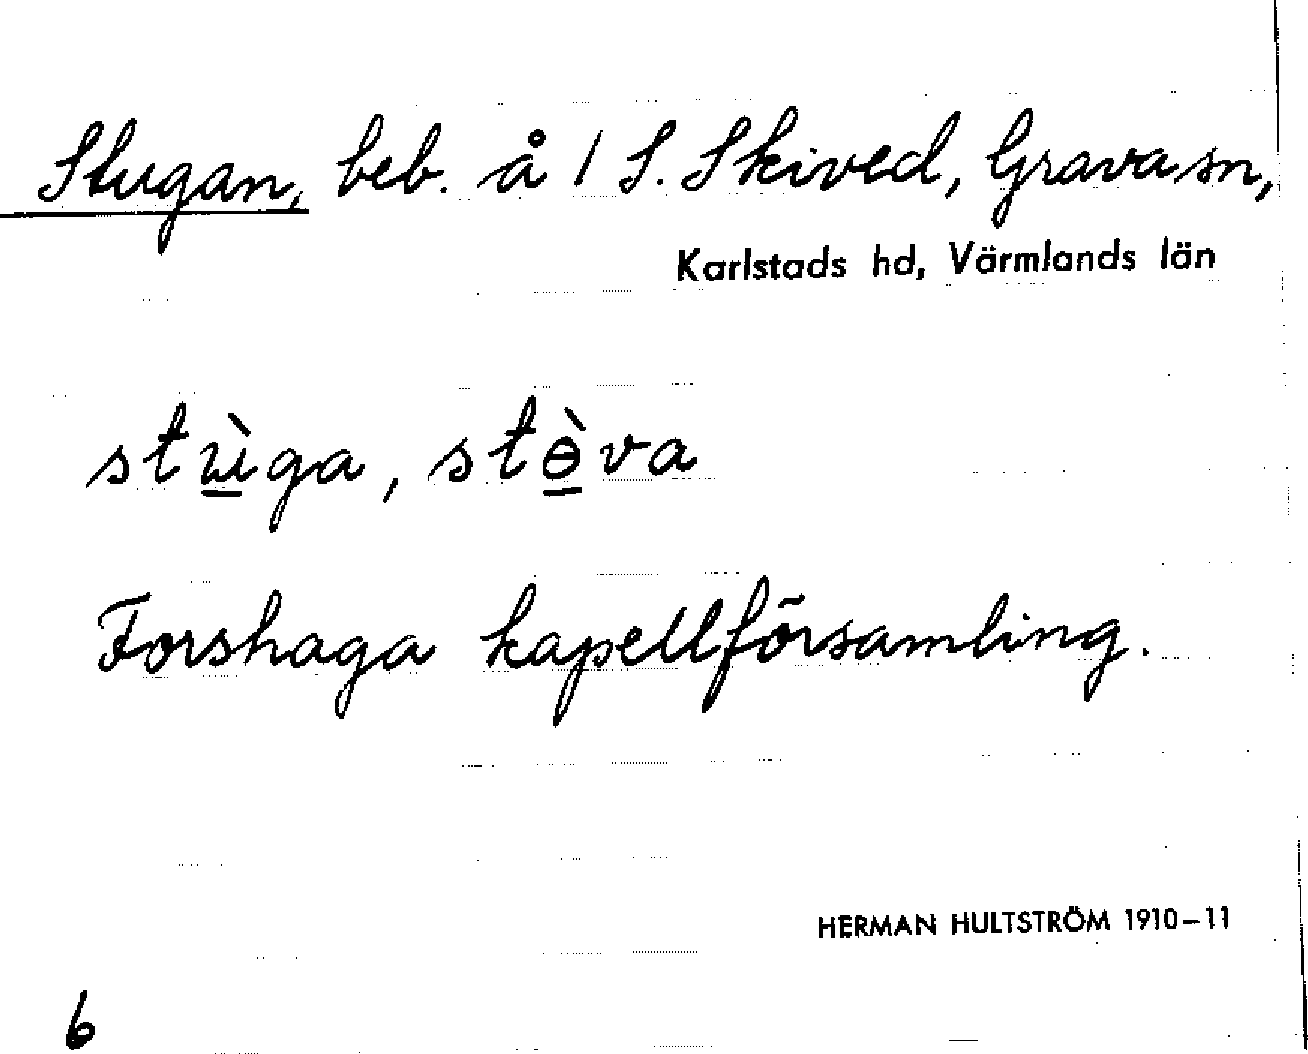 Stugan, beb. å 1 S. Skived, Grava sn,
Karlstads hd, Värmlands län
stù̲ga, stɵ̲̀va
Forshaga kapellförsamling.
HERMAN HULTSTRÖM 1910–11
6